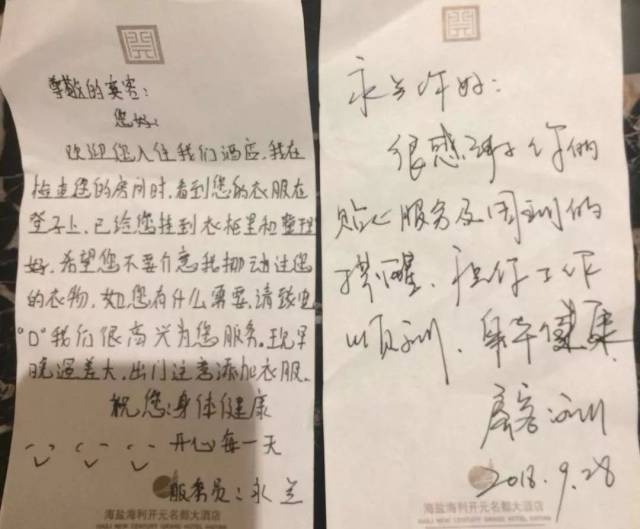 尊敬的宾客:
您好:
欢迎您入住我们酒店,我在
检查您的房间时,看到您的衣服在
登子上,已给您挂到衣柜里和整理
好,希望您不要介意我挪动过您
的衣物,如您有什么需要,请致电
"0"我们很高兴为您服务。现早
晚温差大,出门注意添加衣服。
祝您:身体健康
开心每一天
服务员:永兰
海盐海利开元名都大酒店
HAILI NEW CENTURY GRAND HOTEL HAIYAN
永兰你好:
很感谢你的
贴心服务及周到的
提醒,祝你工作
顺利,身体健康
房客:
2018.9.28
海盐海利开元名都大酒店
HAILI NEW CENTURY GRAND HOTEL HAIYAN